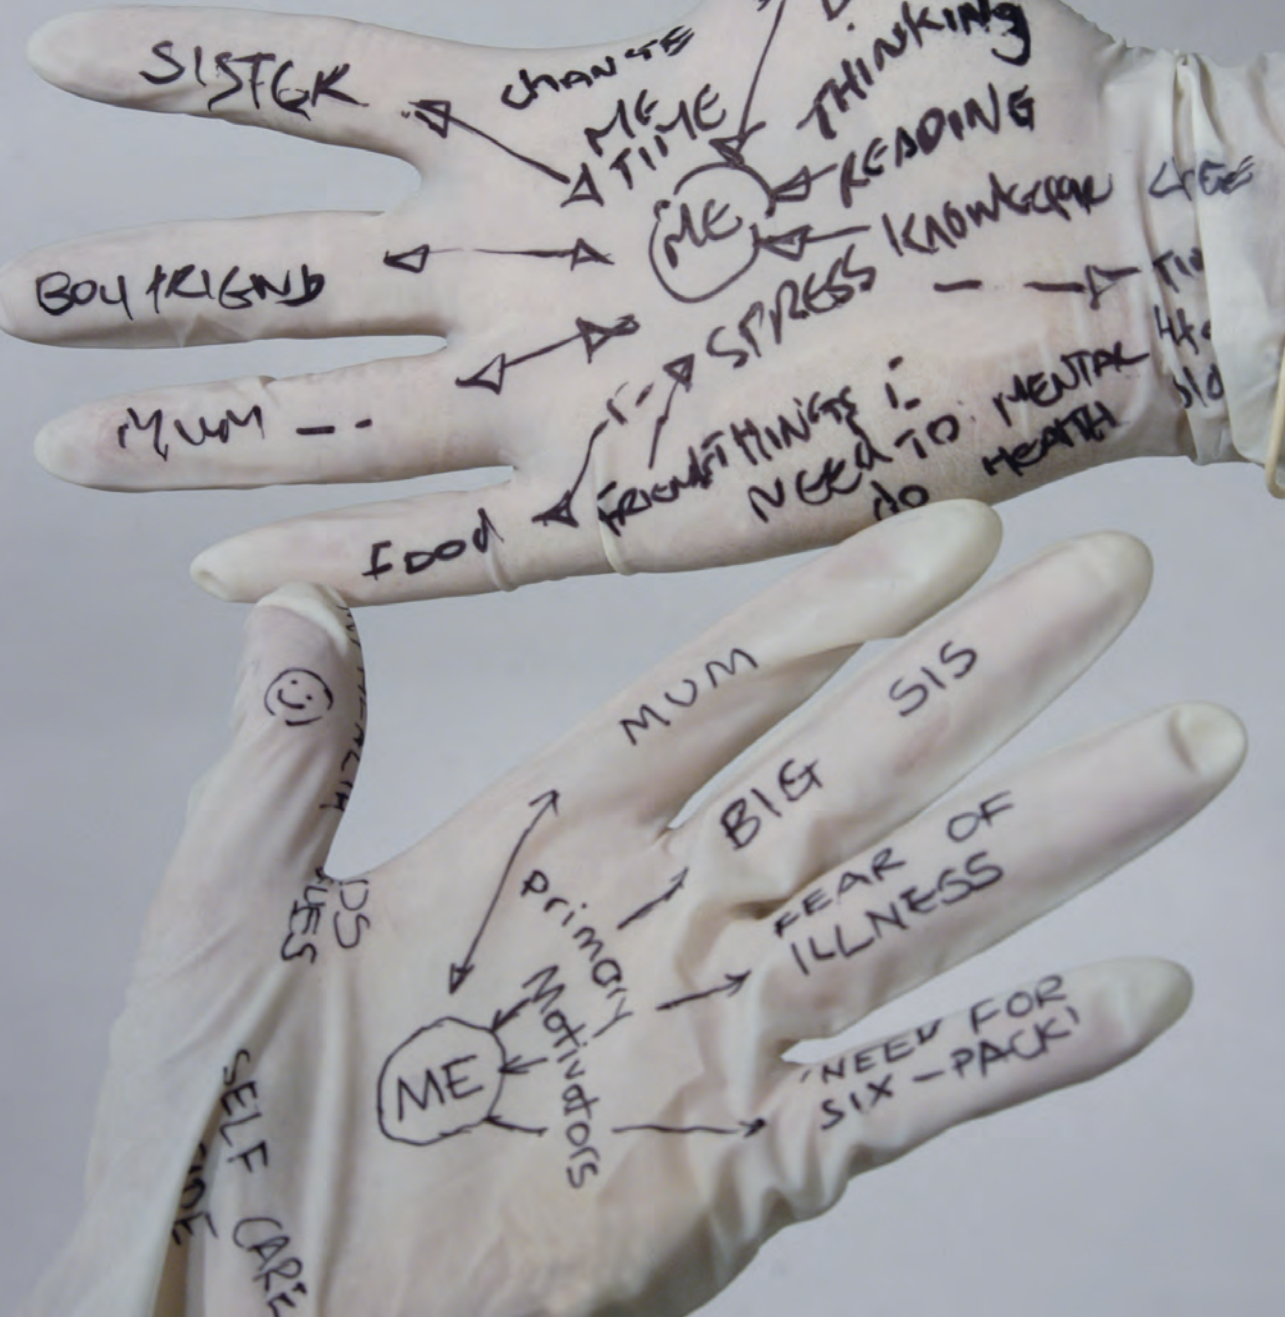 SISTER
CHANGE
ME
TIME
THINKING
READING
ME
BOYFRIEND
STRESS
MUM
FOOD
FRIEND
THINGS I
NEED TO
DO
MENTAL
HEALTH
MUM
BIG SIS
FEAR OF
ILLNESS
'NEED FOR
SIX-PACK'
Primary
Motivators
ME
SELF CARE